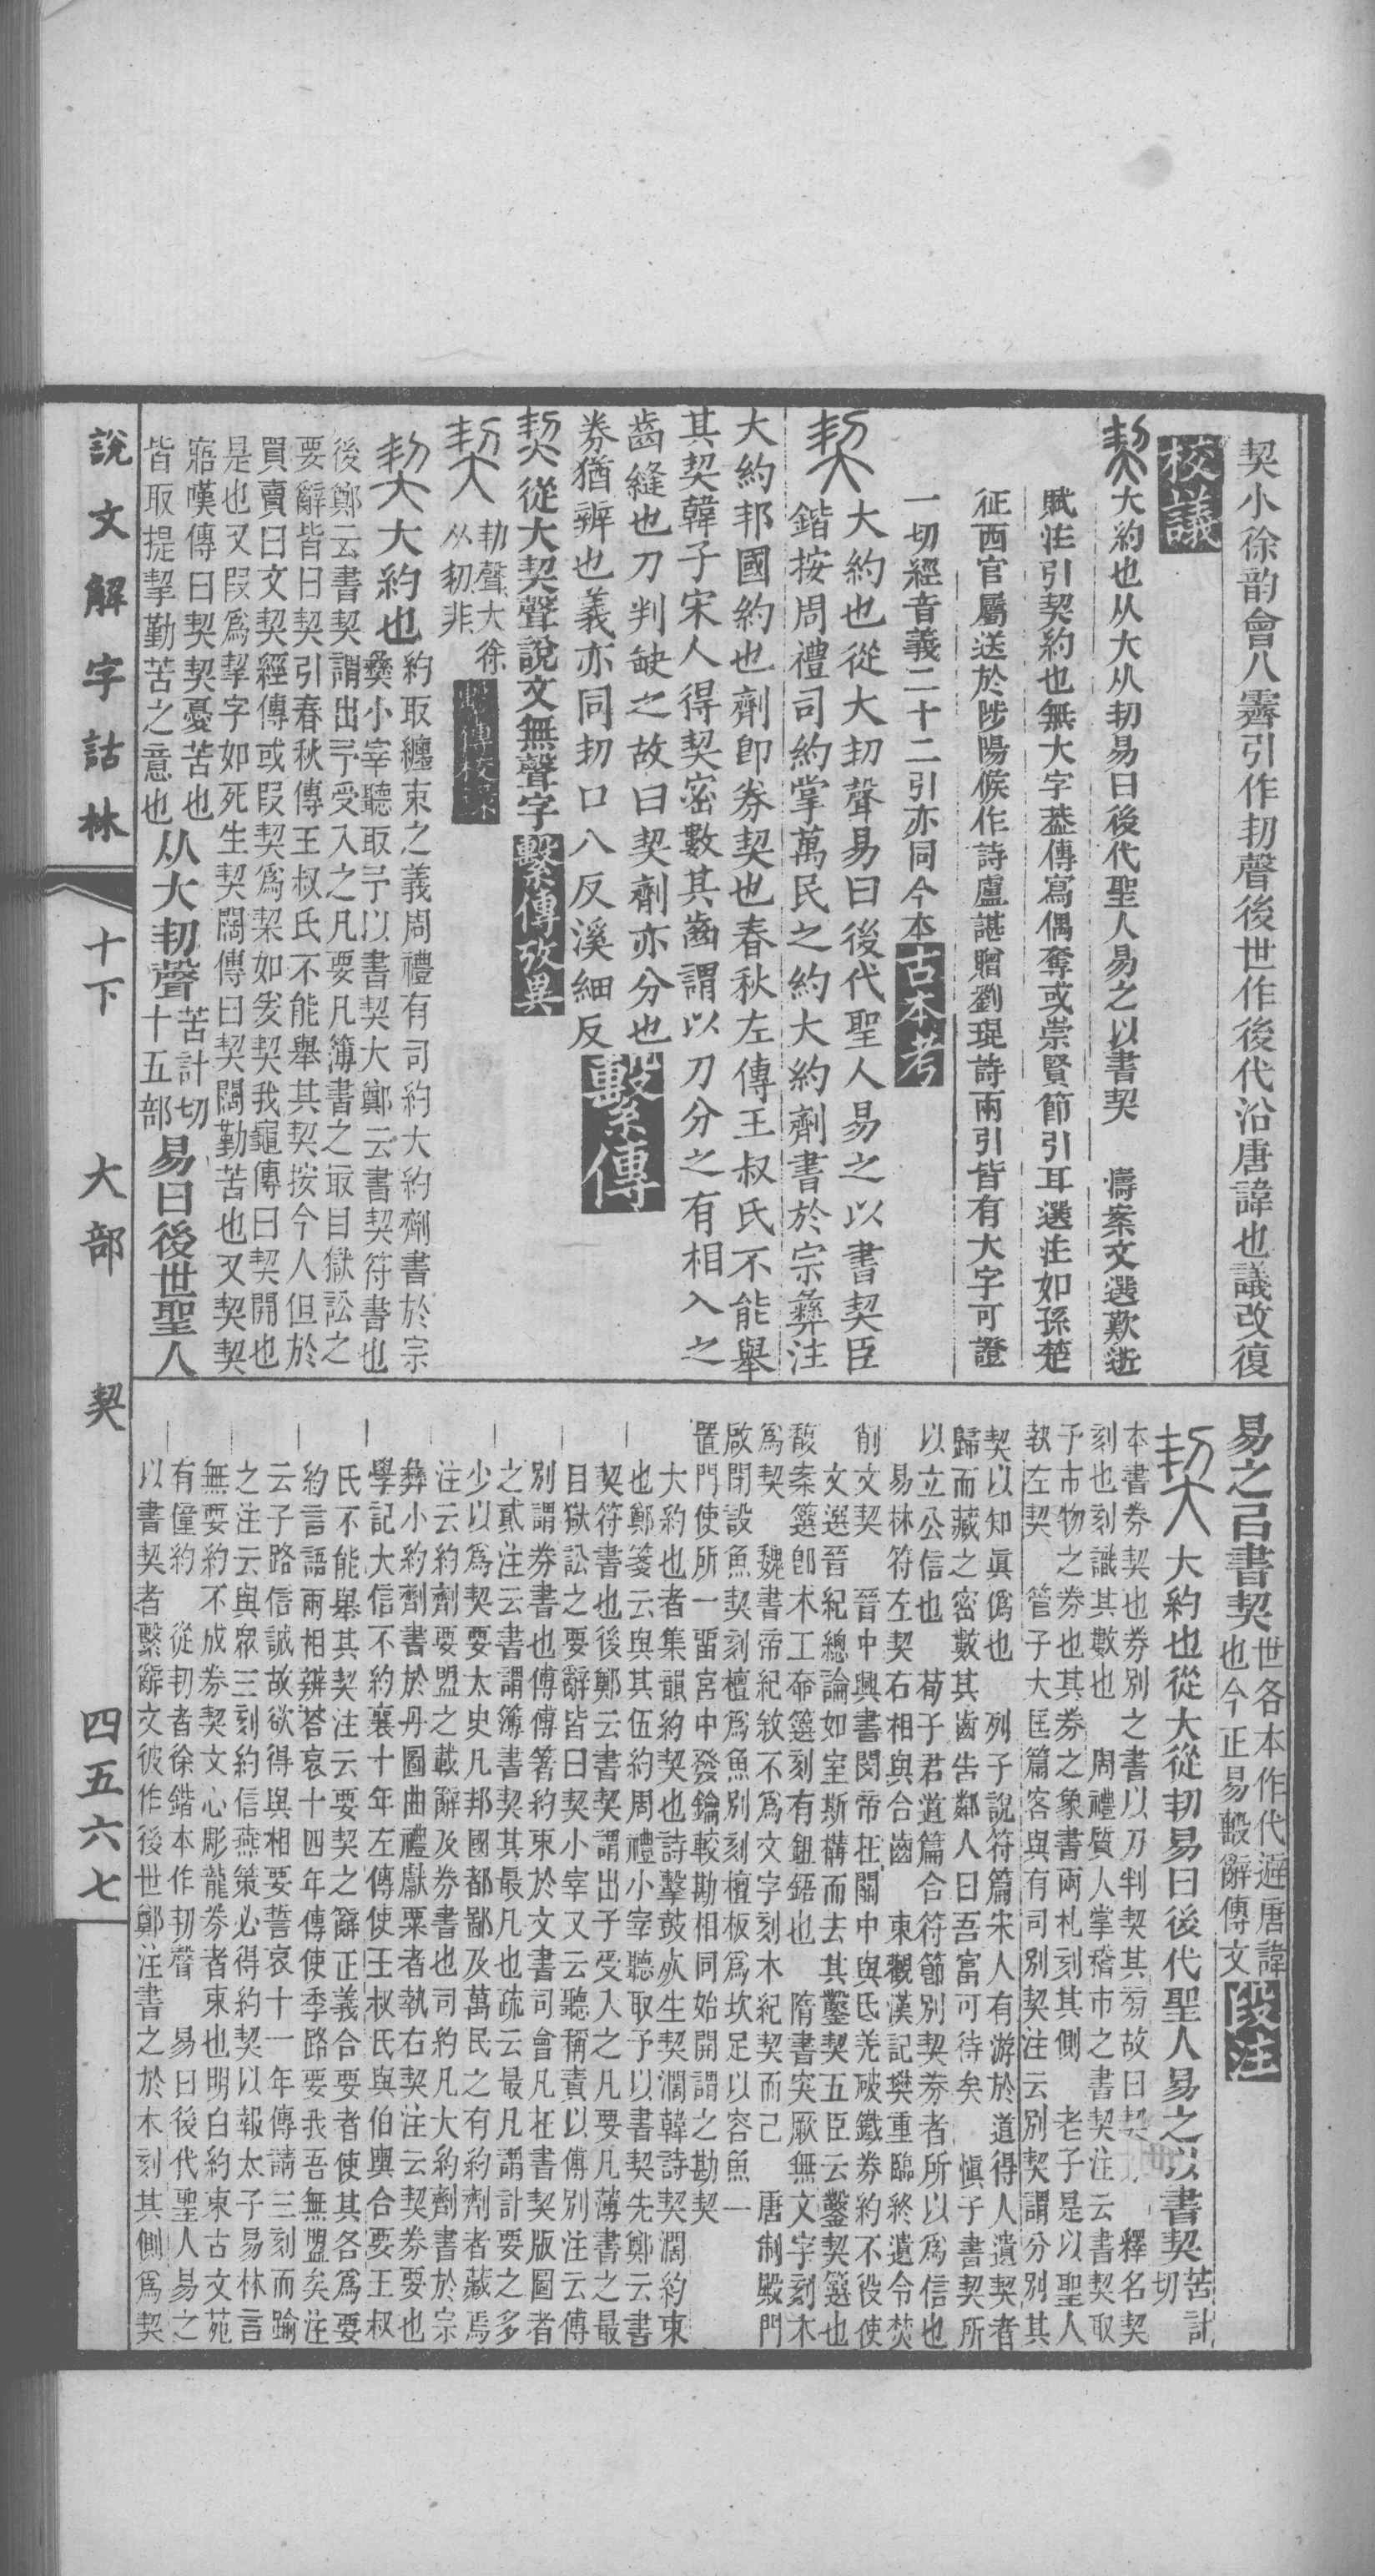 契小徐韵會八霽引作㓞聲後世作後代沿唐諱也議改復
校議
契大約也从大从㓞易曰後代聖人易之以書契　濤案文選歎逝
賦注引契約也無大字葢傳寫偶奪或崇賢節引耳選注如孫楚
征西官屬送於陟陽候作詩盧諶贈劉琨詩兩引皆有大字可證
一切經音義二十二引亦同今本古本考
契大約也從大㓞聲易曰後代聖人易之以書契臣
鍇按周禮司約掌萬民之約大約劑書於宗彝注
大約邦國約也劑卽券契也春秋左傳王叔氏不能舉
其契韓子宋人得契密數其齒謂以刀分之有相入之
齒縫也刀判缺之故曰契劑亦分也
券猶辨也義亦同㓞口八反溪細反繫傳
契從大契聲說文無聲字繫傳攷異
契㓞聲大徐
从㓞非繫傳校錄
契大約也約取纏束之義周禮有司約大約劑書於宗
彝小宰聽取予以書契大鄭云書契符書也
後鄭云書契謂出予受入之凡要凡簿書之冣目獄訟之
要辭皆曰契引春秋傳王叔氏不能舉其契按今人但於
買賣曰文契經傳或叚契爲栔如爰契我龜傳曰契開也
是也又叚爲挈字如死生契闊傳曰契闊勤苦也又契契
寤嘆傳曰契契憂苦也
皆取提挈勤苦之意也从大㓞聲苦計切
十五部易曰後世聖人
易之㠯書契世各本作代避唐諱
也今正易毄辭傳文段注
契大約也從大從㓞易曰後代聖人易之以書契苦計
切
本書券契也券別之書以刀判契其旁故曰契　釋名契
刻也刻識其數也　周禮質人掌稽市之書契注云書契取
予市物之券也其券之象書兩札刻其側　老子是以聖人
執左契　管子大匡篇客與有司別契注云別契謂分別其
契以知眞僞也　列子說符篇宋人有游於道得人遺契者
歸而藏之密數其齒告鄰人曰吾富可待矣　愼子書契所
以立公信也　荀子君道篇合符節別契券者所以爲信也
易林符左契右相與合齒　東觀漢記樊重臨終遺令焚
削文契　晉中興書閔帝在關中與氐羌破鐵券約不役使
文選晉紀總論如室斯構而去其鑿契五臣云鑿契簨也
馥案簨卽木工筍簨刻有鈕鋙也　隋書突厥無文字刻木
爲契　魏書帝紀敘不爲文字刻木紀契而已　唐制殿門
啟閉設魚契刻檀爲魚別刻檀板爲坎足以容魚一
置門使所一畱宮中發鑰較勘相同始開謂之勘契
大約也者集韻約契也詩擊鼓死生契闊韓詩契闊約束
也鄭箋云與其伍約周禮小宰聽取予以書契先鄭云書
契符書也後鄭云書契謂出予受入之凡要凡簿書之最
目獄訟之要辭皆曰契小宰又云聽稱責以傅別注云傅
別謂券書也傅傅箸約束於文書司會凡在書契版圖者
之貳注云書謂簿書契其最凡也疏云最凡謂計要之多
少以爲契要太史凡邦國都鄙及萬民之有約劑者藏焉
注云約劑要盟之載辭及券書也司約凡大約劑書於宗
彝小約劑書於丹圖曲禮獻粟者執右契注云契券要也
學記大信不約襄十年左傳使王叔氏與伯輿合要王叔
氏不能舉其契注云要契之辭正義合要者使其各爲要
約言語兩相辨荅哀十四年傳使季路要我吾無盟矣注
云子路信誠故欲得與相要誓哀十一年傳請三刻而踰
之注云與眾三刻約信燕策必得約契以報太子易林言
無要約不成券契文心彫龍券者束也明白約束古文苑
有僮約　從㓞者徐鍇本作㓞聲　易曰後代聖人易之
以書契者繫辭文彼作後世鄭注書之於木刻其側爲契
說文解字詁林　十下　大部　契　四五六七